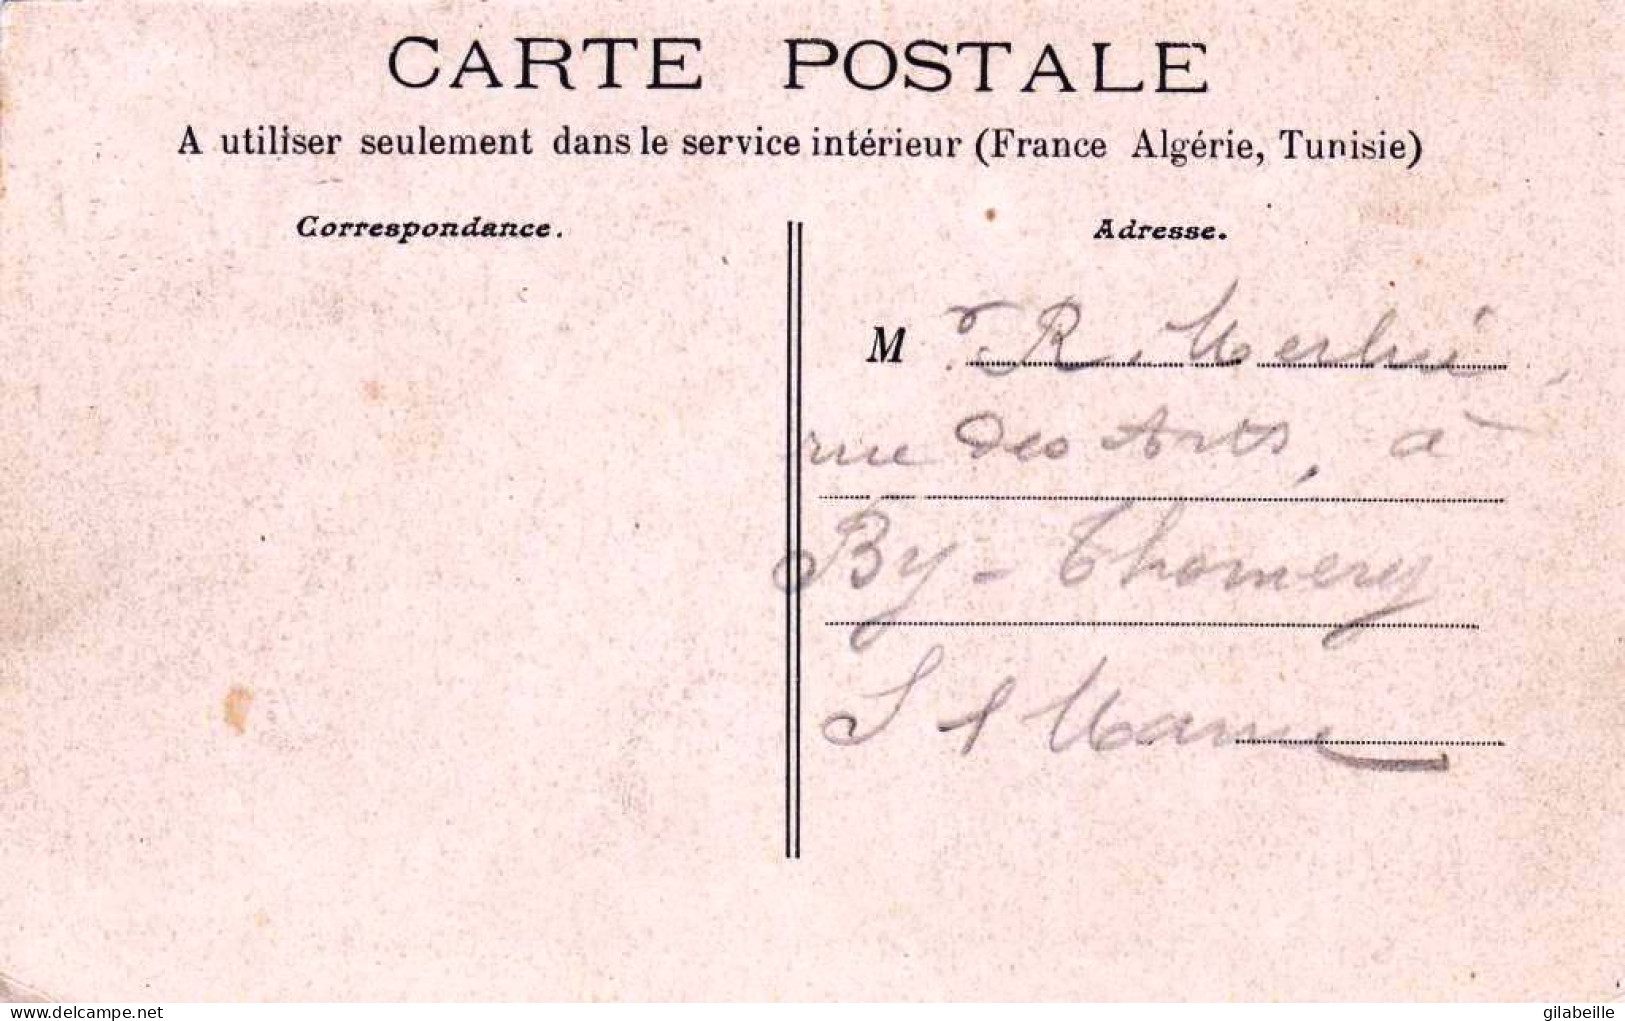 CARTE POSTALE
A utiliser seulement dans le service intérieur (France Algérie, Tunisie)
Correspondance.
Adresse.
Mr R. Merlin
rue des Arts, à
By-Thomery
S & Marne
delcampe.net
gilabeille